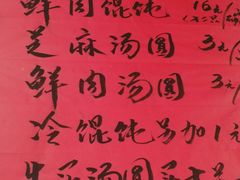 鲜肉馄饨 16元/
芝麻汤圆 3元/
鲜肉汤圆 3元/
冷馄饨另加1元
汤圆